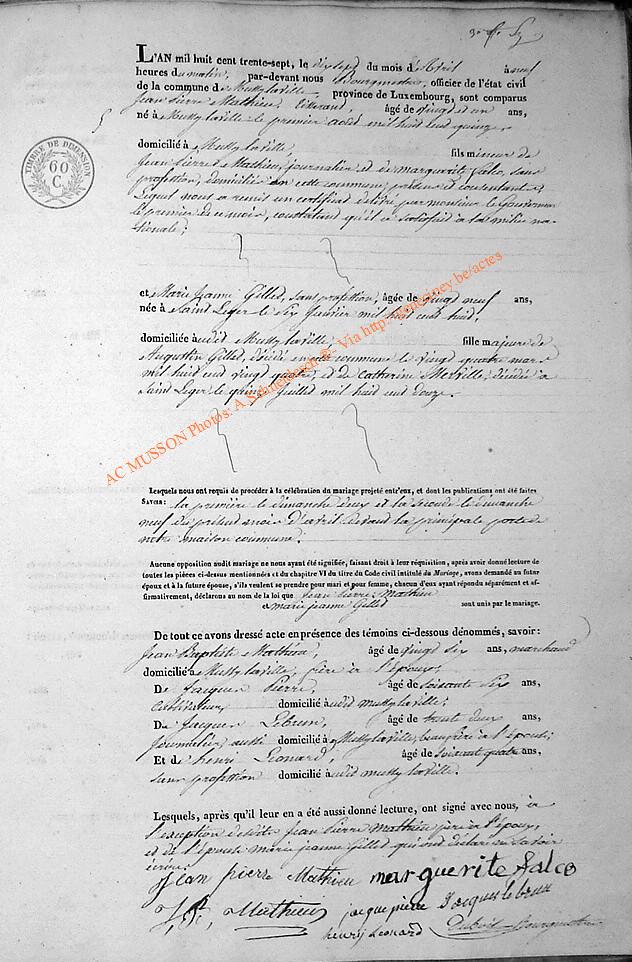 L'AN mil huit cent trente-sept, le dix sept du mois d'Avril à neuf
heures du matin, par-devant nous Bourgmestre, officier de l'état civil
de la commune de Mussy la ville province de Luxembourg, sont comparus
Jean Pierre Mathieu, âgé de vingt et un ans,
né à Mussy la ville le premier août mil huit cent quinze
TIMBRE DE DIMENSION
60
C.
domicilié à Mussy la ville, fils mineur de
Jean Pierre Mathieu, journalier et de marguerite falco, sans
profession, domiciliés en cette commune, présens et consentants
Lequel nous a remis un certificat délivré par monsieur le Gouverneur
le premier de ce mois, constatant qu'il a satisfait à la milice na-
tionale;
et Marie Jeanne Gillet, sans profession, âgée de vingt neuf ans,
née à Saint Leger le six février mil huit cent huit,
domiciliée audit Mussy la ville, fille majeure de
Augustin Gillet, décédé en cette commune le vingt quatre mars
mil huit cent vingt quatre, et de Catherine décédée à
Saint Leger le quinze juillet mil huit cent douze.
AC MUSSON Photos: A Via
Lesquels nous ont requis de procéder à la célébration du mariage projeté entr'eux, et dont les publications ont été faites
SAVOIR: la première le dimanche deux et la seconde le dimanche
neuf du présent mois d'avril devant la principale porte de
notre maison commune.
Aucune opposition audit mariage ne nous ayant été signifiée, faisant droit à leur réquisition, après avoir donné lecture de
toutes les pièces ci-dessus mentionnées et du chapitre VI du titre du Code civil intitulé du Mariage, avons demandé au futur
époux et à la future épouse, s'ils veulent se prendre pour mari et pour femme, chacun d'eux ayant répondu séparément et af-
firmativement, déclarons au nom de la loi que Jean Pierre Mathieu
et marie jeanne Gillet sont unis par le mariage.
De tout ce avons dressé acte en présence des témoins ci-dessous dénommés, savoir:
Jean Baptiste Mathieu, âgé de vingt six ans, marchand
domicilié à Mussy la ville, frère à l'époux,
De Jacques Pierre, âgé de soixante six ans,
cultivateur, domicilié audit mussy la ville.
De Jacques Lebrun, âgé de trente deux ans,
journalier aussi domicilié à Mussy la ville, beau frère à l'épouse;
Et de henri Leonard, âgé de soixante quatre ans,
sans profession domicilié audit mussy la ville.
Lesquels, après qu'il leur en a été aussi donné lecture, ont signé avec nous, à
l'exception desdits Jean Pierre Mathieu père à l'époux,
et de l'épouse marie jeanne Gillet qui ont déclaré ne savoir
écrire.
Jean pierre Mathieu marguerite falco
Mathieu jacque pierre Jacques lebrun
henry Leonard Bourgmestre